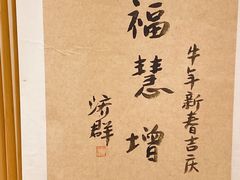 福慧增
牛年新春吉庆
济群